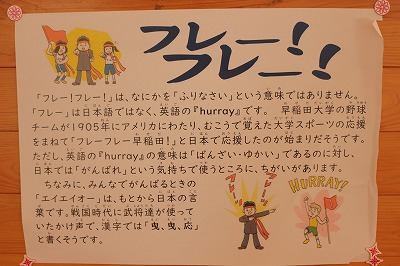 フレー!
フレー!!
「フレー!フレー!」は、なにかを「ふりなさい」という意味ではありません。
「フレー」は日本語ではなく、英語の『hurray』です。 早稲田大学の野球
チームが1905年にアメリカにわたり、むこうで覚えた大学スポーツの応援
をまねて「フレーフレー早稲田!」と日本で応援したのが始まりだそうです。
ただし、英語の『hurray』の意味は「ばんざい・ゆかい」であるのに対し、
日本では「がんばれ」という気持ちで使うところに、ちがいがあります。
ちなみに、みんなでがんばるときの
「エイエイオー」は、もとから日本の言
葉です。戦国時代に武将達が使って
いたかけ声で、漢字では「曳、曳、応」
と書くそうです。
HURRAY!